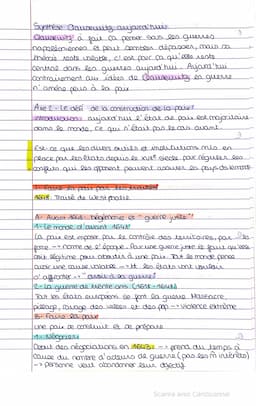 Synthèse Clausewitz aujourd'hui:
Clausewitz a fait ça penser dans les guerres
napoléoniennes et peut sembler dépassée, mais sa
théorie reste valable, c'est parce qu'elle reste
central dans les guerres aujourd'hui. Aujourd'hui
contrairement aux idées de Clausewitz la guerre
n'amène pas à la paix
Axe 2 - Le défi de la construction de la paix:
Introduction: aujourd'hui l'état de paix est majoritaire
dans le monde, ce qui n'était pas le cas avant.
Est-ce que les divers outils et institutions mis en
place par les états depuis le XVIIe siècle par réguler les
conflits qui les opposent peuvent assurer les pays
I- Faire la paix par les traités
1648: Traité de Westphalie
A- Avant 1648: hégémonie et "guerre juste"
1- Le monde d'avant 1648
La paix est imposée par le contrôle des territoires, par
force → norme de l'époque. Pour une guerre juste il faut qu'elle
soit légitime pour aboutir à une paix. Tout le monde pense
avoir une cause valable → les états vont vouloir
s'affronter
2- La guerre de trente ans (1618-1648)
Tout les états européens se font la guerre. Massacre
pillage, ravage des villes et des pop → violence extrême
B- Faire la paix
une paix se construit et se prépare
1- Négocier
Début des négociations en 1643 → prend du temps à
cause du nombre d'acteurs de guerre (pas les m intérêts)
→ personne veut abandonner leur objectif
Scanné avec CamScanner